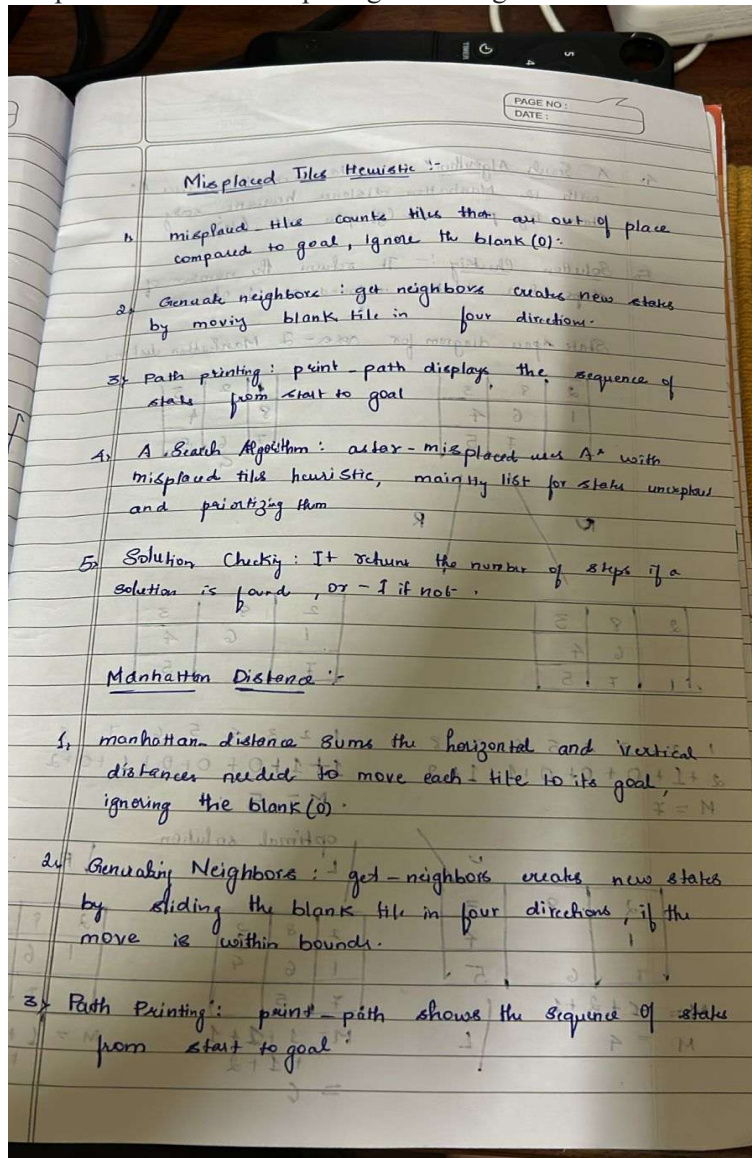 PAGE NO :
DATE :
Misplaced Tiles Heuristic :-
1) misplaced - tiles counts tiles that are out of place
compared to goal, ignore the blank (0).
2) Generate neighbors : get neighbors creates new states
by moving blank tile in four directions.
3) Path printing : print - path displays the sequence of
states from start to goal
4) A Search Algorithm : astar - misplaced uses A* with
misplaced tiles heuristic, list for states unexplored
and prioritizing them
5) Solution Checking : It returns the number of steps if a
solution is found, or -1 if not.
Manhattan Distance :-
1, manhattan distance sums the horizontal and vertical
distances needed to move each - tile to its goal,
ignoring the blank (0).
2) Generating Neighbors : get - neighbors creates new states
by sliding the blank tile in four directions, if the
move is within bounds.
3) Path Printing : print - path shows the sequence of states
from start to goal